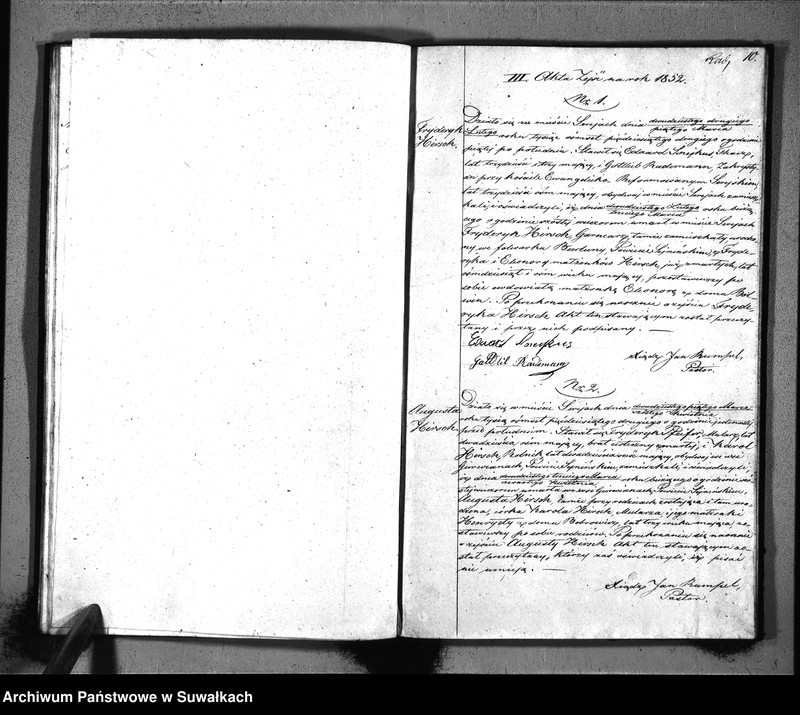 10.
III. Akta Zejść na rok 1852.
No 1.
Fryderyk
Hirsch.
Działo się w mieście Serejach dnia dwudziestego drugiego
Lutego
piątego Marca
roku tysiąc ośmset pięćdziesiątego drugiego o godzinie
piątej po południu. Stawił się Edward
lat trzydzieści i trzy mający, i Gottlib Rademann, Zakrysty-
an przy kościele Ewangelicko Reformowanym Serejskim,
lat trzydzieści ośm mający, obydwaj w mieście Serejach zamiesz-
kali, i oświadczyli, iż dnia dwudziestego Lutego
trzeciego Marca
roku bieżą-
cego o godzinie szóstej wieczorem umarł w mieście Serejach
Fryderyk Hirsch, Garncarz, tamże zamieszkały, urodzo-
ny we folwarku Powiecie Sejneńskim, z Fryde-
ryka i Eleonory małżonków Hirsch, już zmarłych, lat
ośmdziesiąt i ośm wieku mający, pozostawiwszy po
sobie owdowiałą małżonkę Eleonorę z domu
Po przekonaniu się naocznie o zejściu Fryde-
ryka Hirsch Akt ten stawającym został przeczy-
tany i przez nich podpisany.
Ksiądz Jan Rumpel,
Pastor.
No 2.
Augusta
Hirsch.
Działo się w mieście Serejach dnia dwudziestego piątego Marca
szóstego Kwietnia
roku tysiąc ośmset pięćdziesiątego drugiego o godzinie jedenastej
przed południem. Stawił się Fryderyk Mularz, lat
dwadzieścia ośm mający, brat cioteczny zmarłej, i Karol
Hirsch, Rolnik, lat mający, obydwaj we wsi
Gurwianach, Powiecie Sejneńskim, zamieszkali, i oświadczyli,
iż dnia dwudziestego trzeciego Marca
czwartego Kwietnia
roku bieżącego o godzinie szó-
stej wieczorem umarła we wsi Gurwianach, Powiecie Sejneńskim,
Augusta Hirsch, tamże przy rodzicach zostająca i tam uro-
dzona, córka Karola Hirsch, Mularza, i jego małżonki
Henryety z domu lat trzy wieku mająca, zo-
stawiwszy po sobie rodziców. Po przekonaniu się naocznie
o zejściu Augusty Hirsch Akt ten stawającym zo-
stał przeczytany, którzy zaś oświadczyli, iż pisać
nie umieją.
Ksiądz Jan Rumpel,
Pastor.
Archiwum Państwowe w Suwałkach